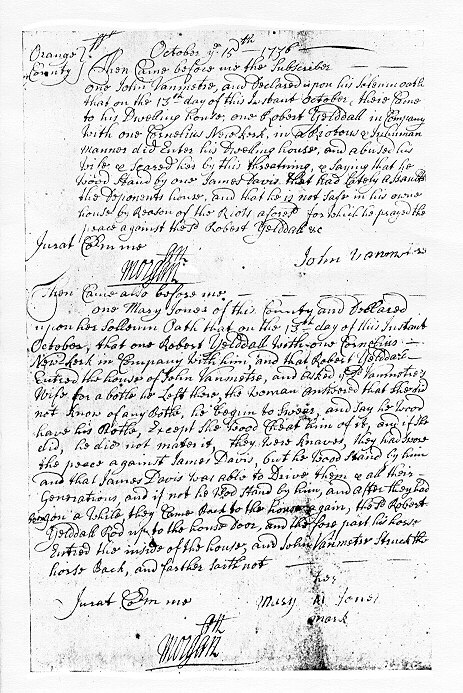 Orange } ss October ye 15th 1736
County } Then Came before me the Subscriber
one John Vanmetre, and Declared upon his Solemn oath
that on the 13th day of this Instant October, there Came
to his Dwelling house, one Robert Yelddall in Company
with one Cornelius Newkerk, in a Riotous & Inhuman
manner did Enter his Dwelling house, and abused his
wife & Scared her by this threatning, & Saying that he
Wood Stand by one James Davis that had lately assaulted
the Deponents house, and that he is not Safe in his owne
house by Reason of the Riots aforesd for which he prayed the
peace against the sd Robert Yelddall &c
Jurat Coram me
Morgan
John Vanmetre
Then Came also before me
one Mary Jones of this County and Declared
upon her Sollemn Oath that on the 13th day of this Instant
October, that one Robert Yelddall with one Cornelius
Newkerk in Company with him, and that Robert Yelddall
Entred the house of John Vanmetre, and asked sd Vanmetre's
Wife for a botle he Left there, the Woman answered that She did
not Know of any Botle, he Begun to Swear, and Say he Wood
have his Botle, Except She Wood Cheat him of it, and if She
did, he did not mater it, they were Knaves, they had Swore
the peace against James Davis, but he Wood Stand by him
and that James Davis was able to Drive them & all their
Generations, and if not he Wod Stand by him, and after they had
gon a While they Came Back to the house again, the sd Robert
Yelddall Rod up to the house Door, and the fore part his horse
Entred the inside of the house, and John Vanmeter Struck the
horse Back, and farther Saith not
her
Jurat Coram me Mary M Jones
mark
Morgan